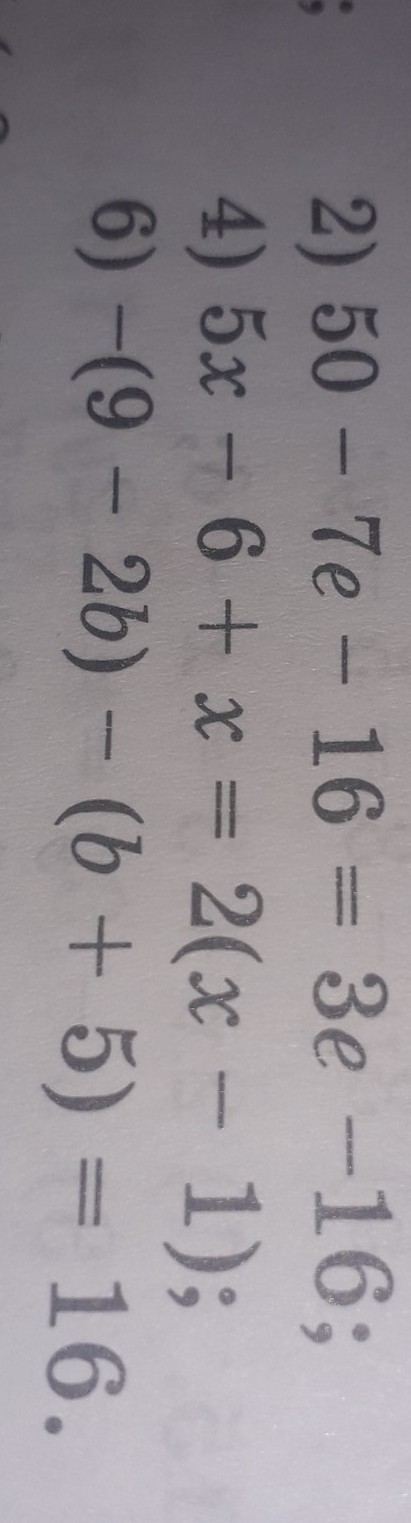 2) 50 − 7e − 16 = 3e −16;
4) 5x − 6 + x = 2(x − 1);
6) −(9 − 2b) − (b + 5) = 16.